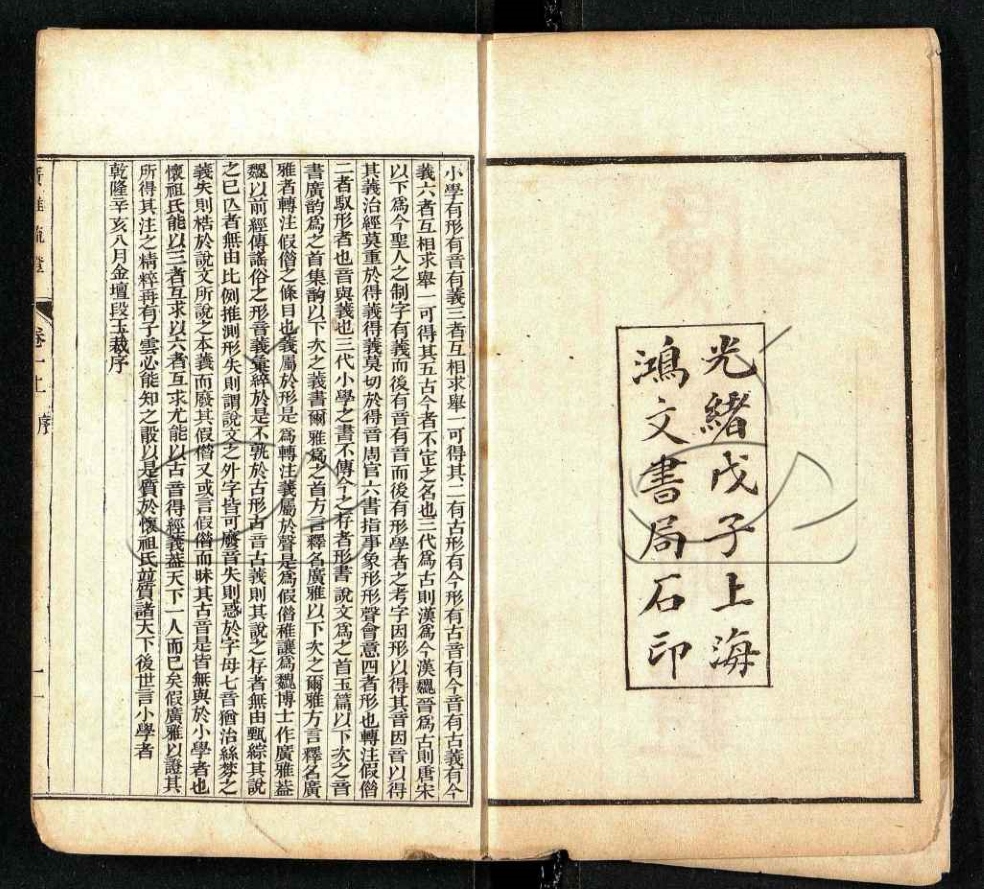 光緒戊子上海
鴻文書局石印
小學有形有音有義三者互相求舉一可得其二有古形有今形有古音有今音有古義有今
義六者互相求舉一可得其五古今者不定之名也三代爲古則漢爲今漢魏晉爲古則唐宋
以下爲今聖人之制字有義而後有音有音而後有形學者之考字因形以得其音因音以得
其義治經莫重於得義得義莫切於得音周官六書指事象形形聲會意四者形也轉注假借
二者馭形者也音與義也三代小學之書不傳今之存者形書說文爲之首玉篇以下次之音
書廣韵爲之首集韵以下次之義書爾雅爲之首方言釋名廣雅以下次之爾雅方言釋名廣
雅者轉注假借之條目也義屬於形是爲轉注義屬於聲是爲假借稚讓爲魏博士作廣雅葢
魏以前經傳謠俗之形音義彙綷於是不孰於古形古音古義則其說之存者無由甄綜其說
之已亾者無由比例推測形失則謂說文之外字皆可廢音失則惑於字母七音猶治絲棼之
義失則梏於說文所說之本義而廢其假借又或言假借而昧其古音是皆無與於小學者也
懷祖氏能以三者互求以六者互求尤能以古音得經義葢天下一人而已矣假廣雅以證其
所得其注之精粹再有子雲必能知之敢以是質於懷祖氏竝質諸天下後世言小學者
乾隆辛亥八月金壇段玉裁序
廣雅疏證 卷一上 序